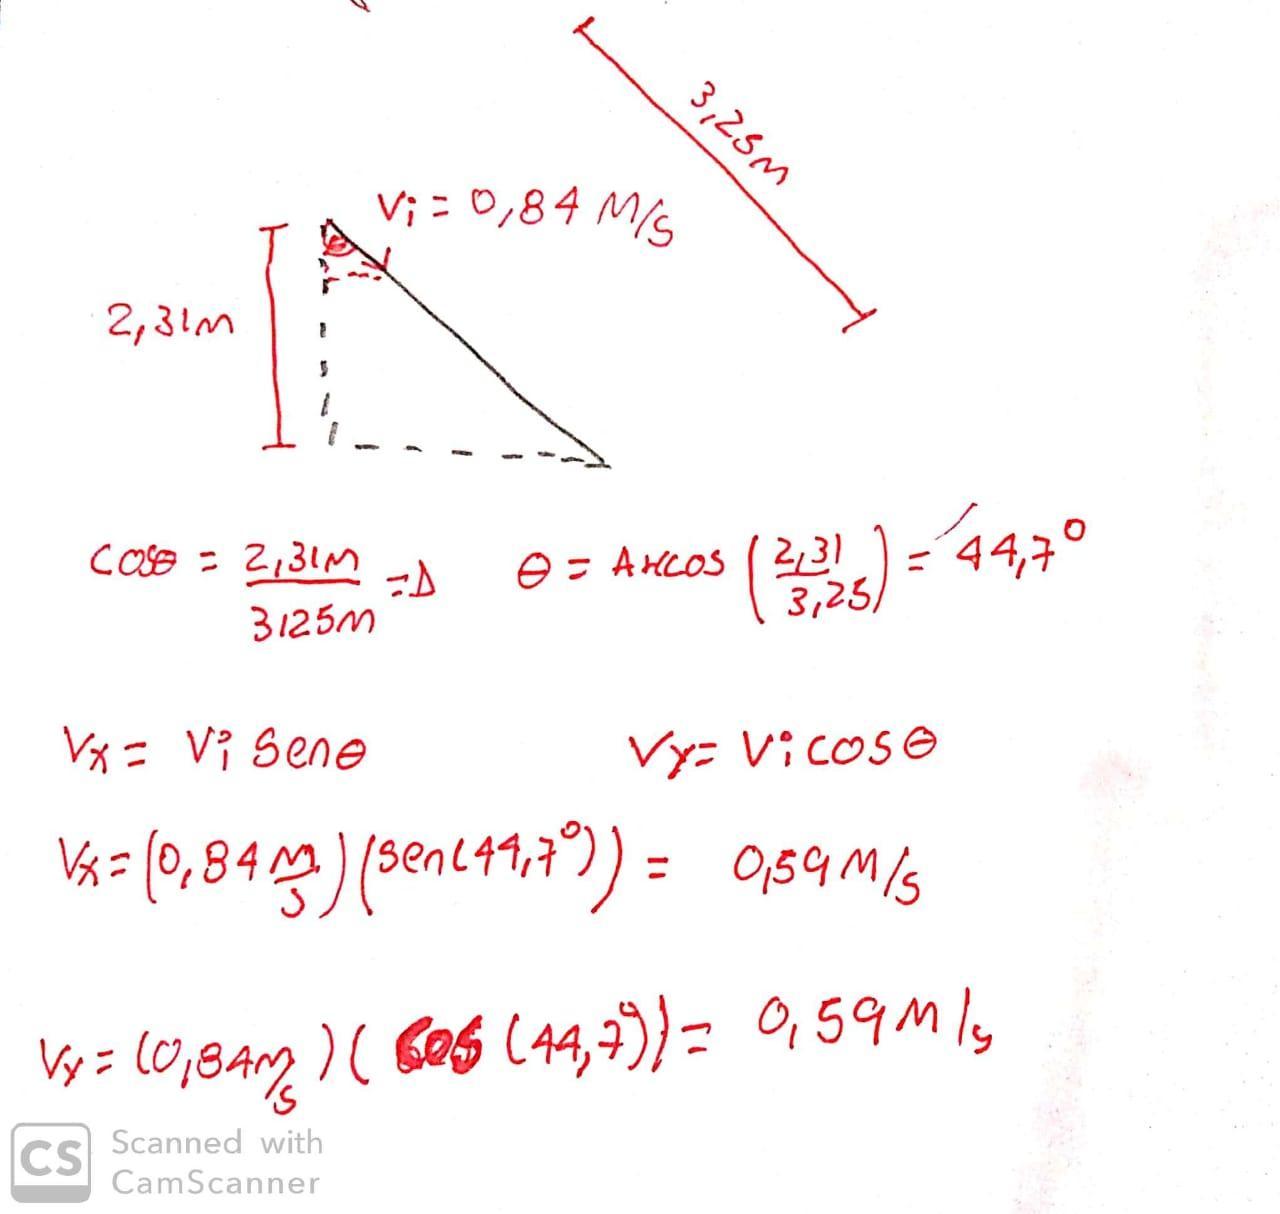 3,25m
Vi = 0,84 M/S
2,31m
cosө = 2,31m / 3,25m => ө = Arccos (2,31 / 3,25) = 44,7°
Vx = Vi Senө
Vy = Vi cosө
Vx = (0,84 m/s) (Sen(44,7°)) = 0,59 M/s
Vy = (0,84 m/s) (Cos (44,7°)) = 0,59 M/s
CS Scanned with
CamScanner